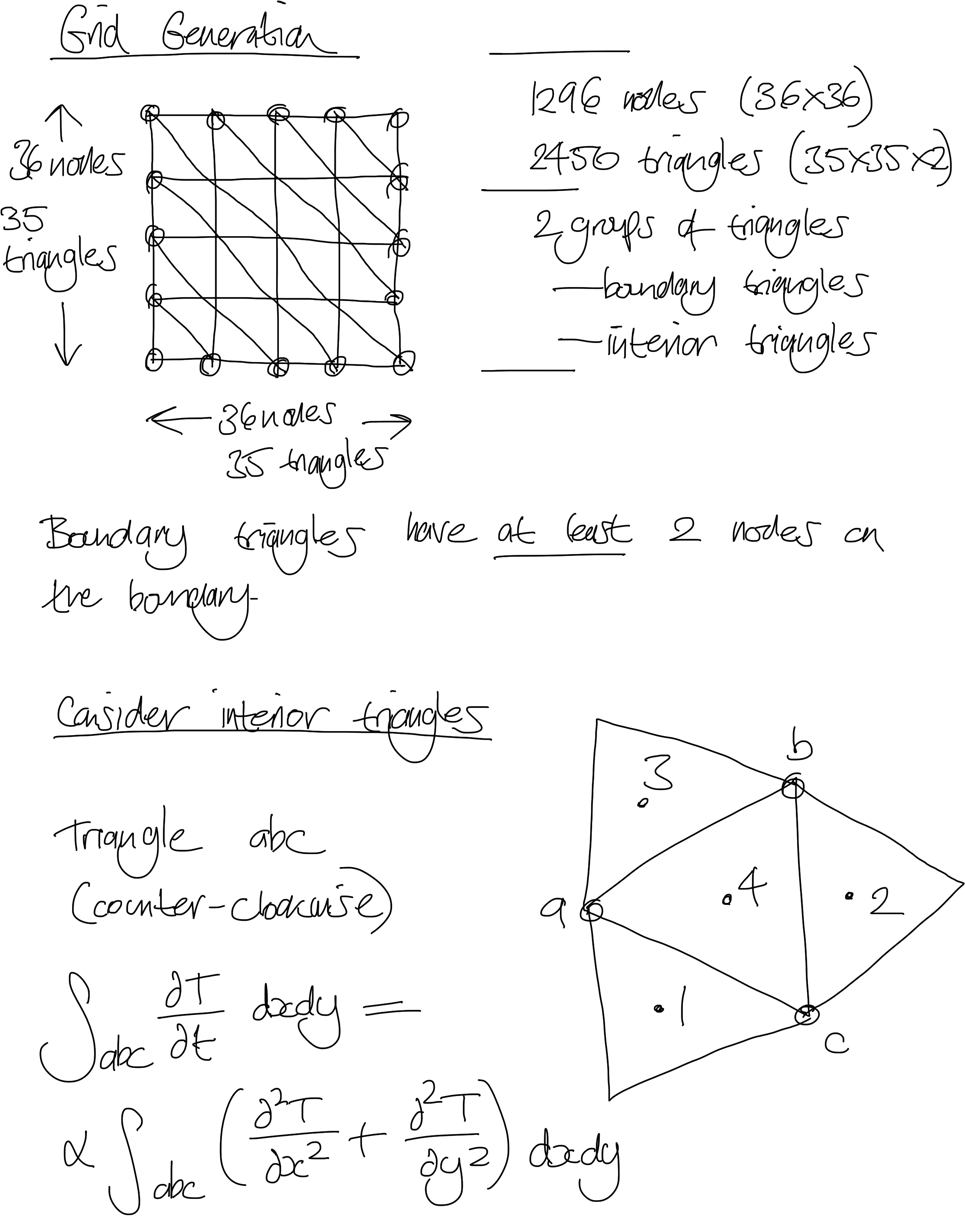 Grid Generation
36 nodes
35
triangles
36 nodes
35 triangles
1296 nodes (36×36)
2450 triangles (35×35×2)
2 groups of triangles
—boundary triangles
—interior triangles
Boundary triangles have at least 2 nodes on
the boundary
Consider interior triangles
Triangle abc
(counter-clockwise)
∫abc ∂T/∂t dxdy =
α ∫abc (∂²T/∂x² + ∂²T/∂y²) dxdy
b
3
4
2
a
1
c